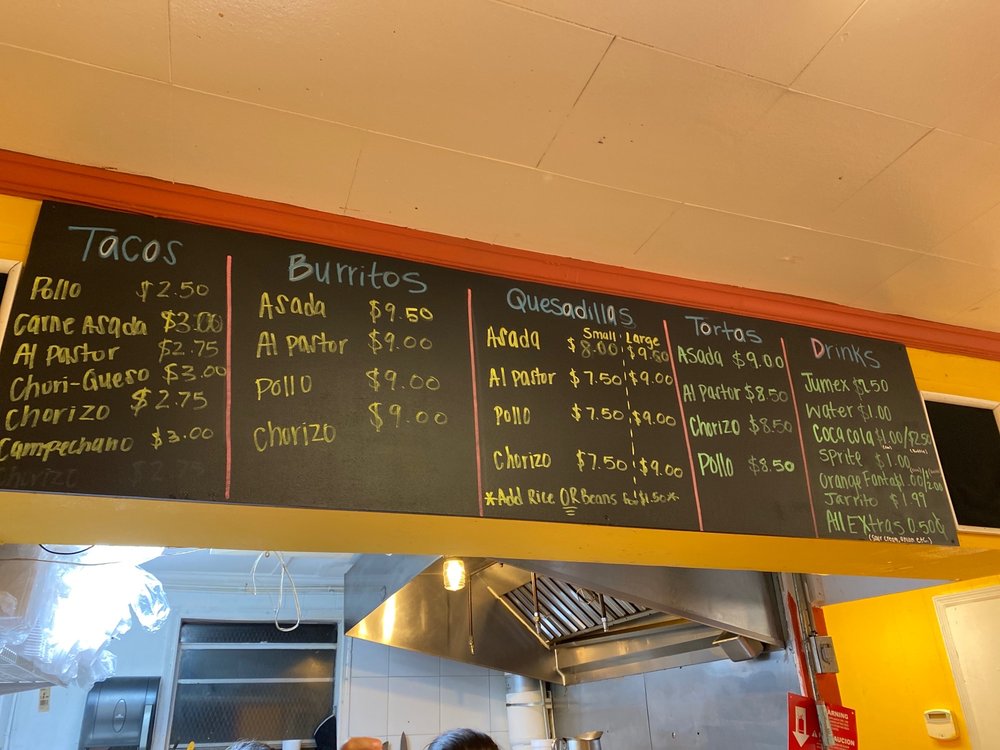 Tacos
Pollo $2.50
Carne Asada $3.00
Al Pastor $2.75
Churi-Queso $3.00
Chorizo $2.75
Campechano $3.00
Burritos
Asada $9.50
Al Pastor $9.00
Pollo $9.00
Chorizo $9.00
Quesadillas
Small Large
Asada $8.00 $9.50
Al Pastor $7.50 $9.00
Pollo $7.50 $9.00
Chorizo $7.50 $9.00
*Add Rice OR Beans for $1.50*
Tortas
Asada $9.00
Al Pastor $8.50
Chorizo $8.50
Pollo $8.50
Drinks
Jumex $2.50
Water $1.00
Coca cola $1.00/$2.50
Sprite $1.00
Orange Fanta $1.00/2.00
Jarrito $1.99
All Extras 0.50¢
(Sour Cream, onion etc.)
WARNING